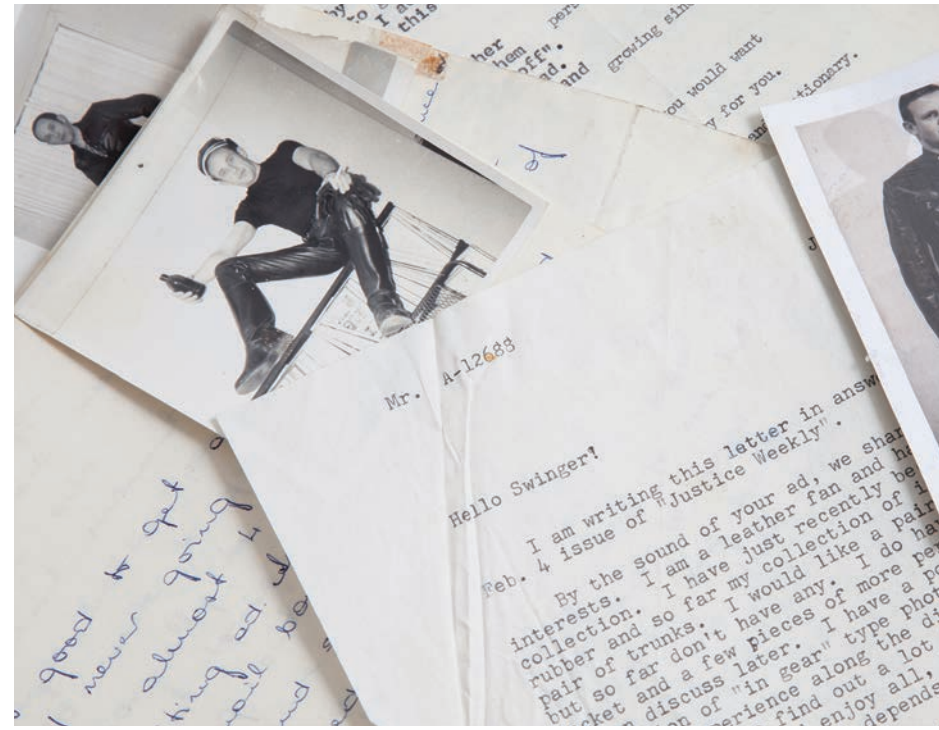 by
to
I a
this
her
hem
off".
ad.
and
pers
growing sinc
ou would want
y for you.
and
tionary.
of
J
Mr. A-12688
Hello Swinger!
I am writing this letter in answ
Feb. 4 issue of "Justice Weekly".
By the sound of your ad, we shar
interests. I am a leather fan and ha
collection. I have just recently be
rubber and so far my collection of i
pair of trunks. I would like a pair
but so far don't have any. I do hav
cket and a few pieces of more per
discuss later. I have a po
on of "in gear" type phot
erience along the di
find out a lot
enjoy all,
depends
good to get
never going
almost
ting ad